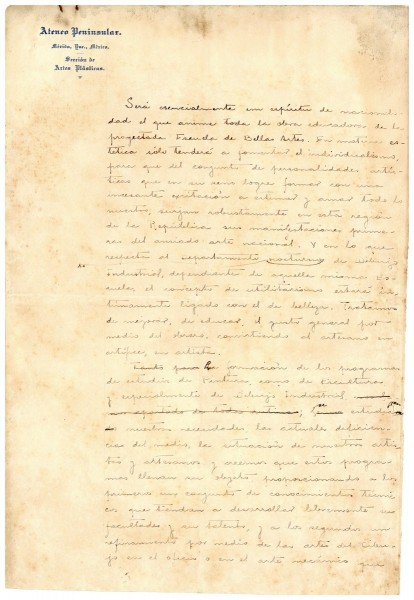 Ateneo Peninsular.
Mérida, Yuc., México.
Sección de
Artes Plásticas.
Será esencialmente un espíritu de nacionali-
dad el que anime toda la obra educadora de la
proyectada Escuela de Bellas Artes. En materia es-
tética sólo tenderá a fomentar el individualismo,
para que del conjunto de personalidades artís-
ticas que en su seno logre formar con una
incesante excitación a estimar y amar todo lo
nuestro, surjan robustamente en esta región
de la República sus manifestaciones prime-
ras del ansiado arte nacional. Y en lo que
respecta al departamento nocturno de Dibujo
Industrial, dependiente de aquella misma Es-
cuela, el concepto de utilitarismo estará ín-
timamente ligado con el de belleza. Tratamos
de mejorar, de educar, el gusto general por
medio del obrero, convirtiendo al artesano en
artífice, en artista.
formación de los programas
de estudios de Pintura, como de Escultura
y especialmente de Dibujo Industrial,
nuestras necesidades las actuales deficien-
cias del medio, la situación de nuestros artis-
tas y artesanos y creemos que estos progra-
mas llevan un objeto proporcionando a los
primeros un conjunto de conocimientos técni-
cos que tiendan a desarrollar libremente sus
facultades y su talento, y a los segundos un
refinamiento por medio de las artes del dibu-
jo en el oficio o en el arte mecánico que